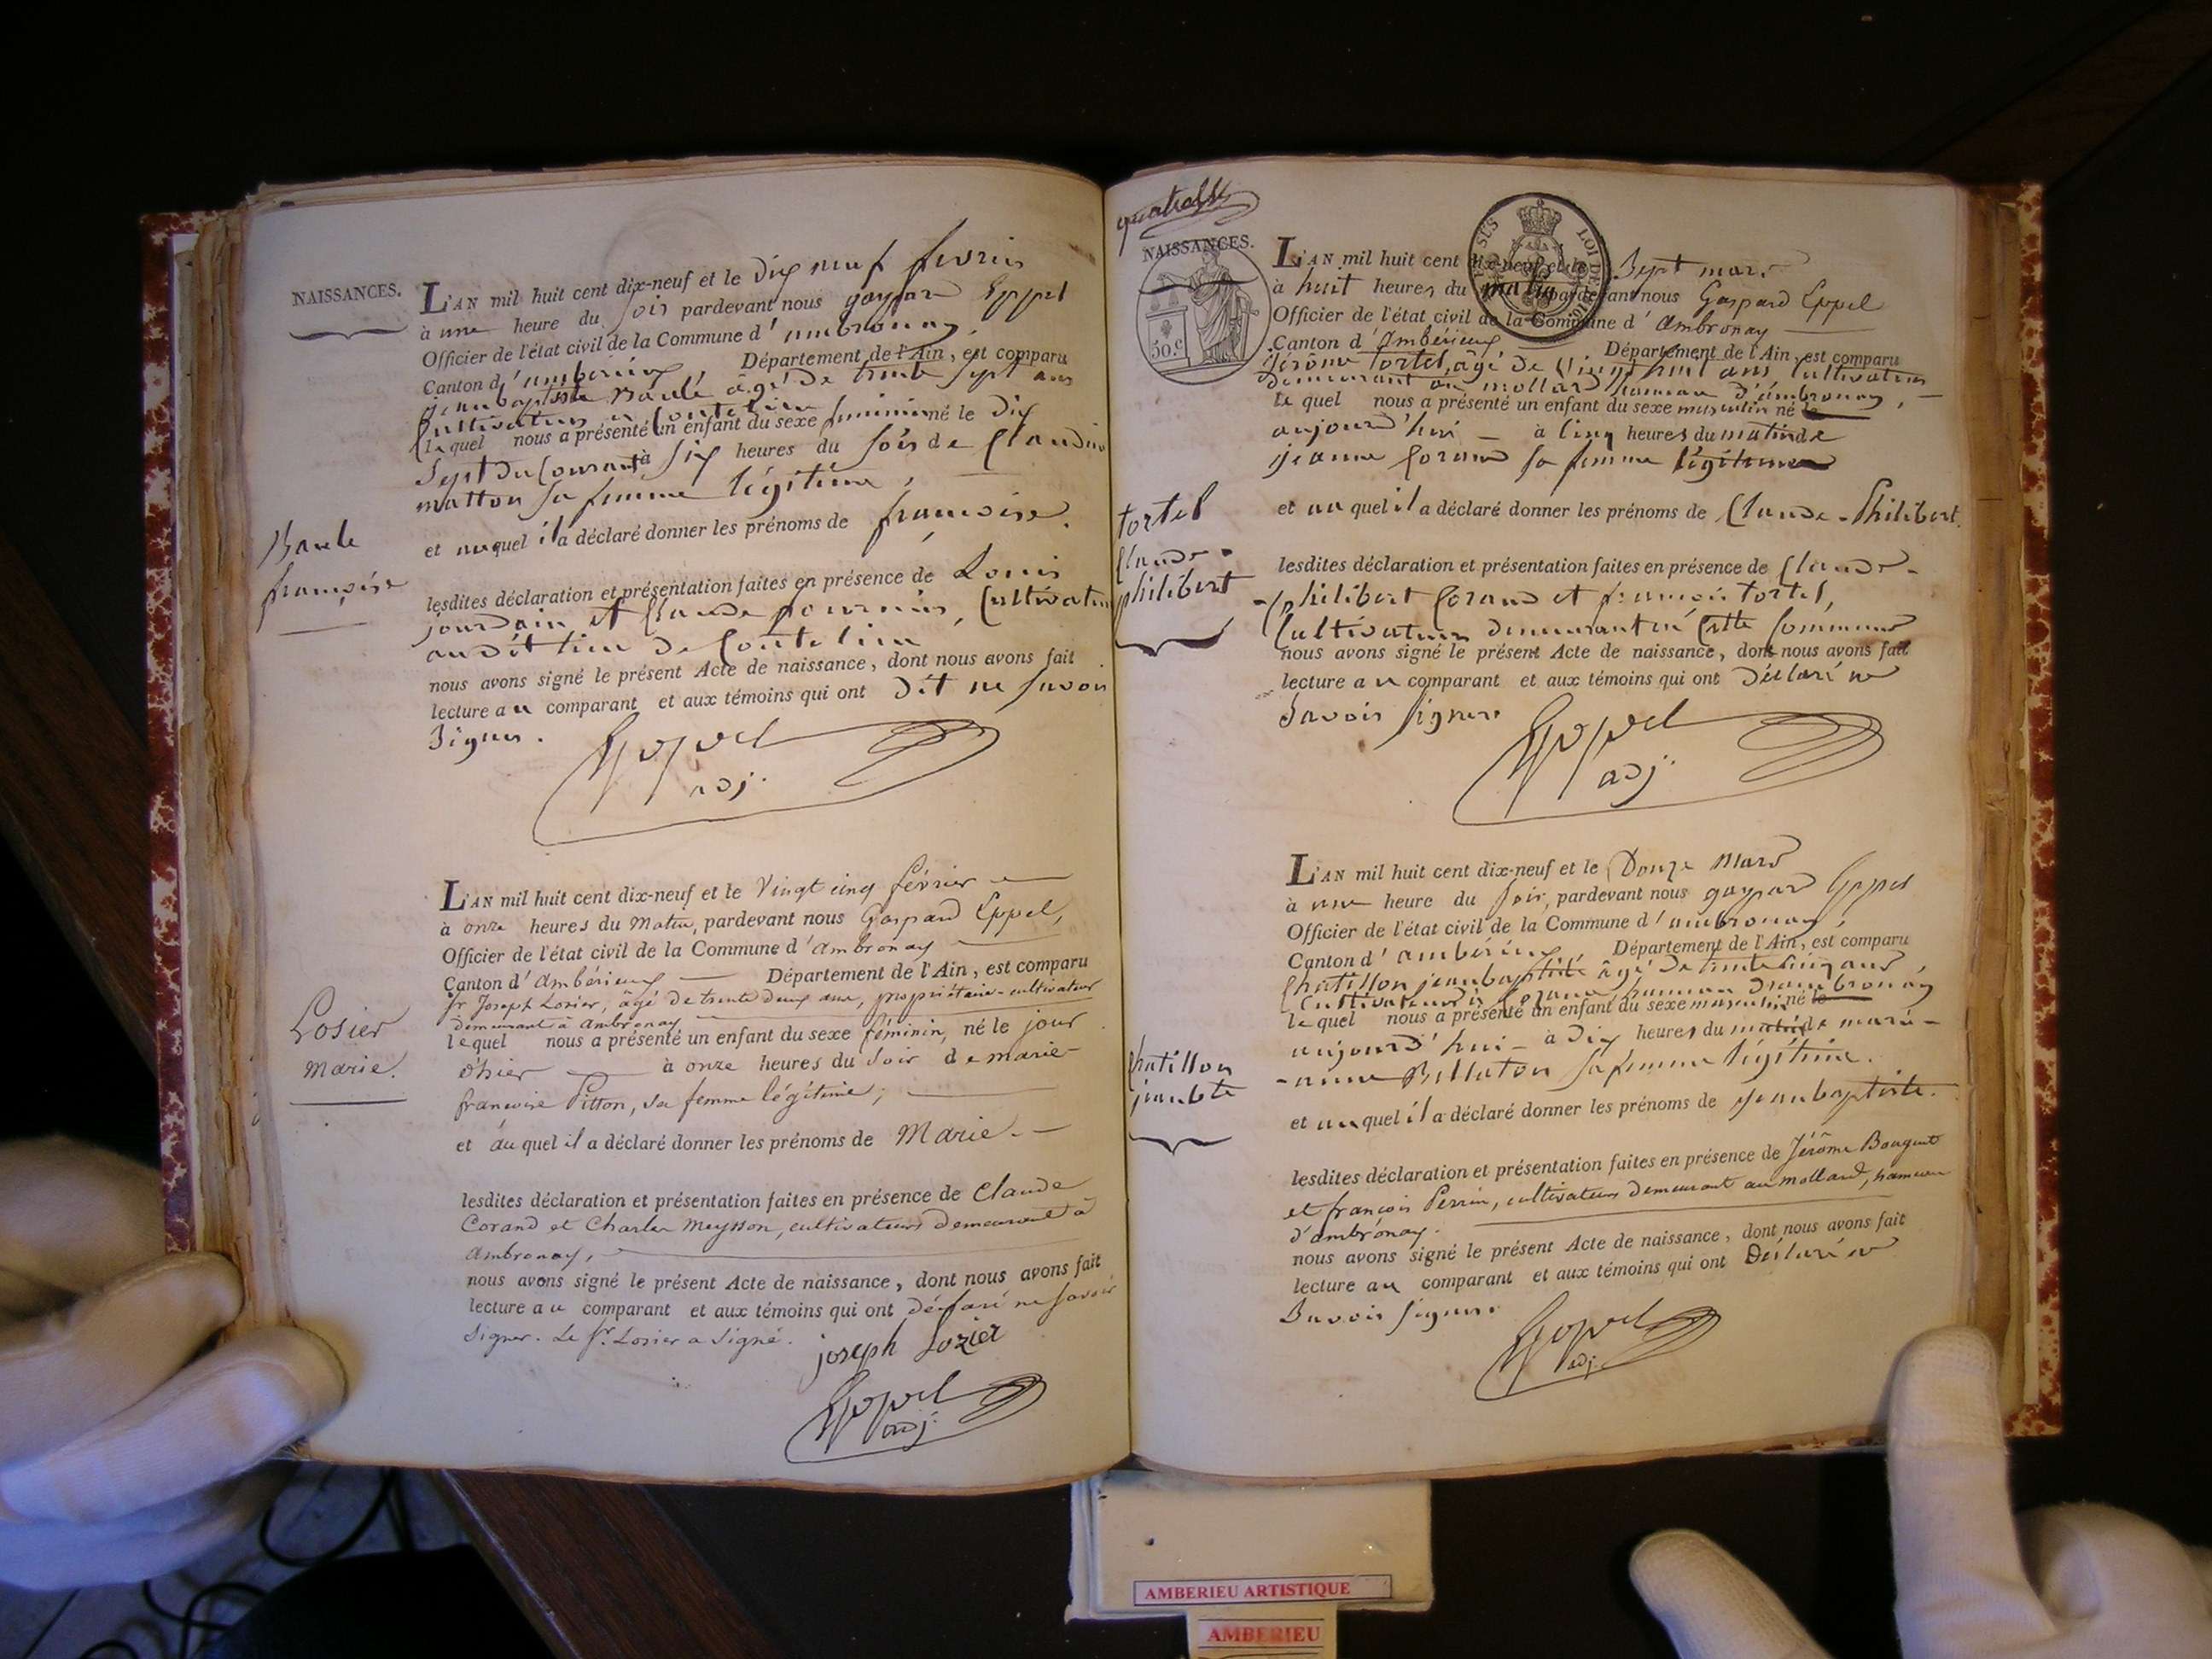 NAISSANCES.
L'AN mil huit cent dix-neuf et le dix neuf fevrier
à une heure du soir pardevant nous gaspard Eppel
Officier de l'état civil de la Commune d'ambronay,
Canton d'ambérieux, Département de l'Ain, est comparu
jeanbaptiste Baule âgé de trente sept ans
Cultivateur à Coutelieu
lequel nous a présenté un enfant du sexe feminin né le dix
Sept du Courant à six heures du soir de Claudine
matton sa femme légitime,
et auquel il a déclaré donner les prénoms de francoise.
Baule
françoise
lesdites déclaration et présentation faites en présence de Louis
jourdain et Claude fournier, Cultivateurs
audit lieu de Coutelieu
nous avons signé le présent Acte de naissance, dont nous avons fait
lecture au comparant et aux témoins qui ont dit ne savoir
Signer.
Eppel
adj.
L'AN mil huit cent dix-neuf et le Vingt cinq février
à onze heures du Matin, pardevant nous Gaspard Eppel,
Officier de l'état civil de la Commune d'ambronay
Canton d'Ambérieux Département de l'Ain, est comparu
sr Joseph Losier, âgé de trente deux ans, propriétaire-cultivateur
demeurant à ambronay
lequel nous a présenté un enfant du sexe féminin, né le jour
d'hier à onze heures du Soir de marie
francoise Pitton, sa femme légitime;
et auquel il a déclaré donner les prénoms de Marie.
Losier
Marie.
lesdites déclaration et présentation faites en présence de Claude
Corand et Charles Meysson, cultivateurs demeurant à
Ambronay,
nous avons signé le présent Acte de naissance, dont nous avons fait
lecture au comparant et aux témoins qui ont déclaré ne savoir
Signer. Le Sr. Losier a Signé.
joseph Lozier
Eppel
adj.
NAISSANCES.
50.c
SUS LOI DE
L'AN mil huit cent dix-neuf et le Sept mars
à huit heures du matin pardevant nous Gaspard Eppel
Officier de l'état civil de la Commune d'Ambronay
Canton d'Ambérieux Département de l'Ain, est comparu
Jérôme tortel, âgé de Vingt huit ans Cultivateur
demeurant au mollard hameau d'ambronay,
le quel nous a présenté un enfant du sexe masculin né le
aujourd'hui à cinq heures du matin de
jeanne Corand sa femme légitime
et au quel il a déclaré donner les prénoms de Claude-Philibert.
tortel
Claude-
philibert
lesdites déclaration et présentation faites en présence de Claude-
-philibert Corand et francois tortel,
Cultivateurs demeurant en cette Commune
nous avons signé le présent Acte de naissance, dont nous avons fait
lecture au comparant et aux témoins qui ont Déclaré ne
Savoir signer.
Eppel
adj.
L'AN mil huit cent dix-neuf et le Douze Mars
à une heure du soir, pardevant nous gaspard Eppel
Officier de l'état civil de la Commune d'ambronay,
Canton d'ambérieux, Département de l'Ain, est comparu
Chatillon jeanbaptiste âgé de trente cinq ans,
Cultivateur à hameau d'ambronay
lequel nous a présenté un enfant du sexe masculin né le
aujourd'hui à dix heures du matin de marie-
-anne Billaton sa femme légitime.
et auquel il a déclaré donner les prénoms de jeanbaptiste.
Chatillon
jeanbte
lesdites déclaration et présentation faites en présence de Jérôme
et françois Perrin, cultivateurs demeurant au mollard, hameau
d'ambronay.
nous avons signé le présent Acte de naissance, dont nous avons fait
lecture au comparant et aux témoins qui ont Déclaré ne
Savoir signer.
Eppel
adj.
AMBERIEU ARTISTIQUE
AMBERIEU